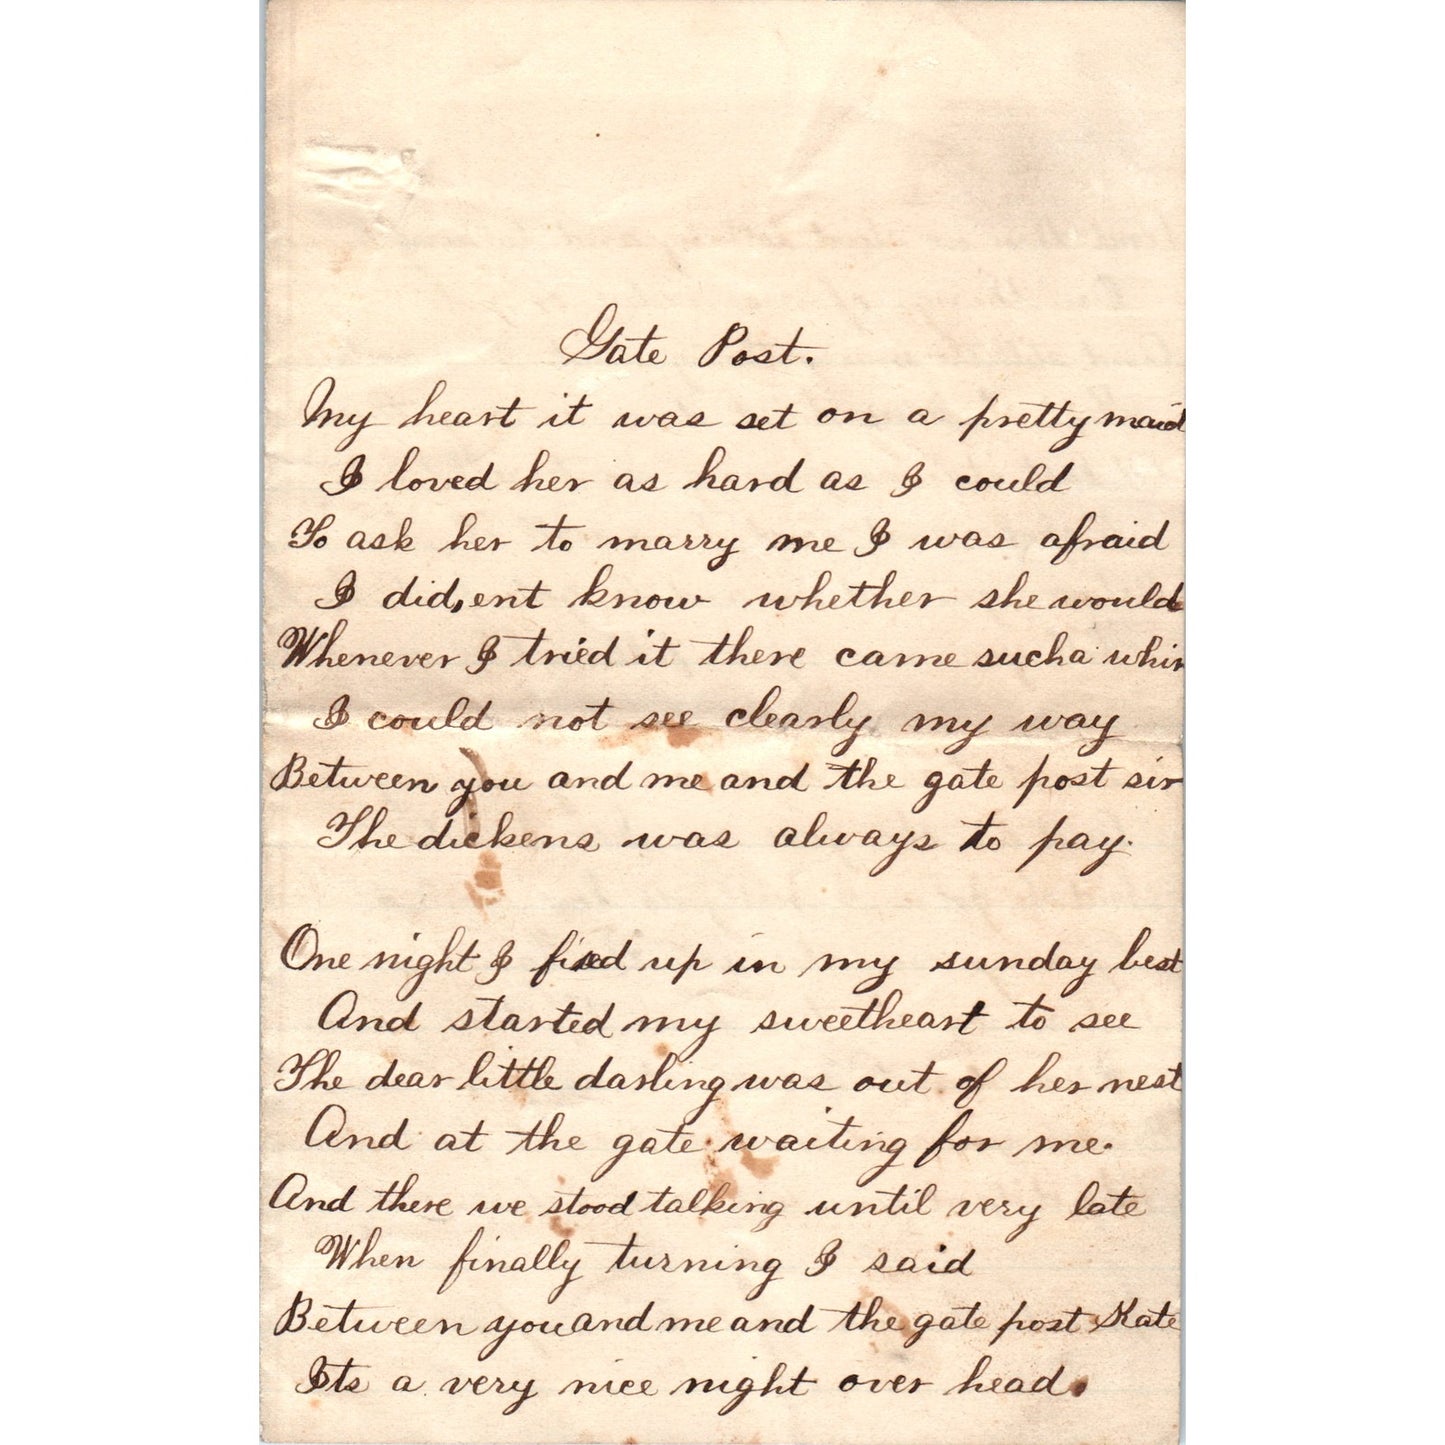 Gate Post.
My heart it was set on a pretty maid
I loved her as hard as I could
To ask her to marry me I was afraid
I did,ent know whether she would
Whenever I tried it there came sucha whir
I could not see clearly my way
Between you and me and the gate post sir
The dickens was always to pay.
One night I fixed up in my sunday best
And started my sweetheart to see
The dear little darling was out of her nest
And at the gate waiting for me.
And there we stood talking until very late
When finally turning I said
Between you and me and the gate post Kate
Its a very nice night over head.